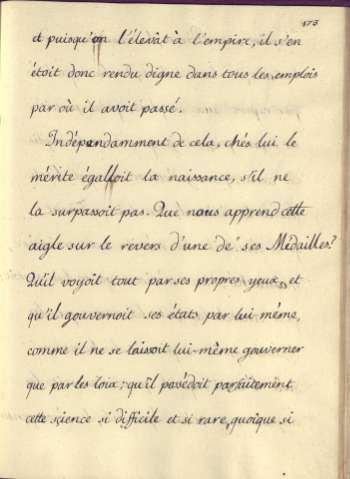 173
et puisqu'on l'élevât à l'empire, il s'en
étoit donc rendu digne dans tous les emplois
par où il avoit passé.
Indépendamment de cela, chés lui le
mérite égalloit la naissance, s'il ne
la surpassoit pas. Que nous apprend cette
aigle sur le revers d'une de ses Médailles?
Qu'il voyoit tout par ses propres yeux, et
qu'il gouvernoit ses états par lui même,
comme il ne se laissoit lui-même gouverner
que par les loix; qu'il possédoit parfaitement
cette science si difficile et si rare, quoique si